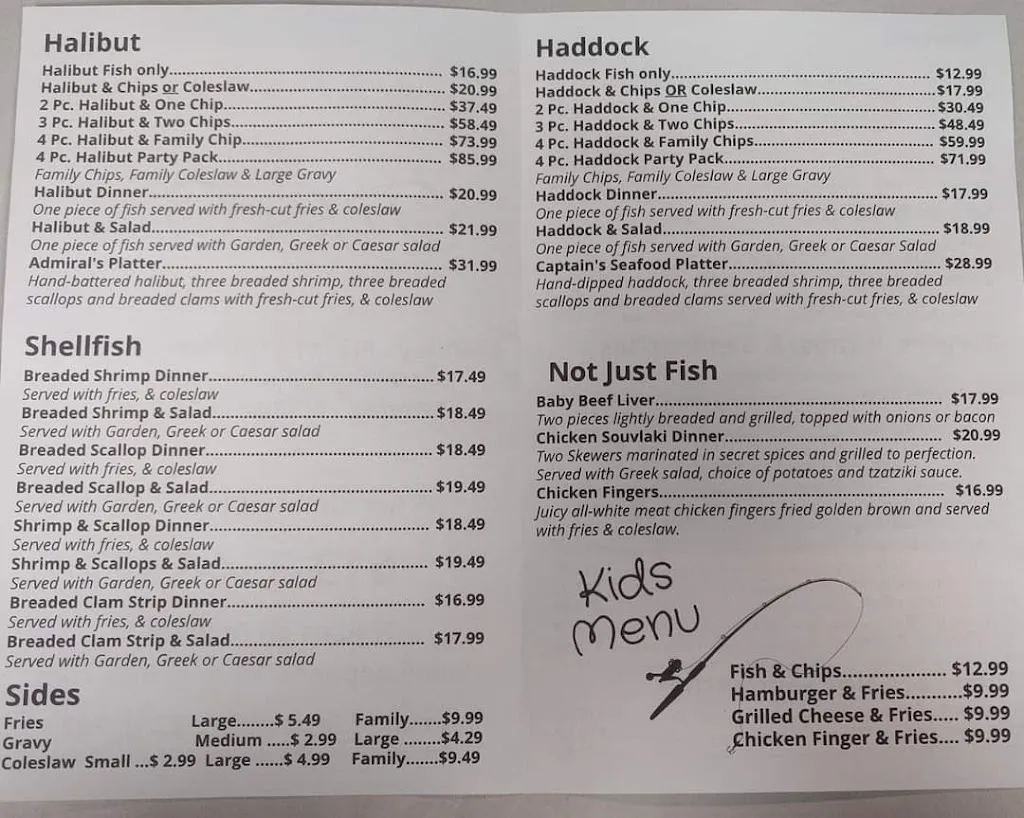 Halibut
Halibut Fish only.................................................................. $16.99
Halibut & Chips or Coleslaw............................................... $20.99
2 Pc. Halibut & One Chip.................................................... $37.49
3 Pc. Halibut & Two Chips.................................................. $58.49
4 Pc. Halibut & Family Chip................................................ $73.99
4 Pc. Halibut Party Pack...................................................... $85.99
Family Chips, Family Coleslaw & Large Gravy
Halibut Dinner...................................................................... $20.99
One piece of fish served with fresh-cut fries & coleslaw
Halibut & Salad..................................................................... $21.99
One piece of fish served with Garden, Greek or Caesar salad
Admiral's Platter................................................................... $31.99
Hand-battered halibut, three breaded shrimp, three breaded
scallops and breaded clams with fresh-cut fries, & coleslaw
Shellfish
Breaded Shrimp Dinner...................................................... $17.49
Served with fries, & coleslaw
Breaded Shrimp & Salad..................................................... $18.49
Served with Garden, Greek or Caesar salad
Breaded Scallop Dinner...................................................... $18.49
Served with fries, & coleslaw
Breaded Scallop & Salad..................................................... $19.49
Served with Garden, Greek or Caesar salad
Shrimp & Scallop Dinner..................................................... $18.49
Served with fries, & coleslaw
Shrimp & Scallops & Salad.................................................. $19.49
Served with Garden, Greek or Caesar salad
Breaded Clam Strip Dinner................................................ $16.99
Served with fries, & coleslaw
Breaded Clam Strip & Salad............................................... $17.99
Served with Garden, Greek or Caesar salad
Sides
Fries Large........$ 5.49 Family.......$9.99
Gravy Medium .....$ 2.99 Large ........$4.29
Coleslaw Small ...$ 2.99 Large ......$ 4.99 Family.......$9.49
Haddock
Haddock Fish only............................................................... $12.99
Haddock & Chips OR Coleslaw...........................................$17.99
2 Pc. Haddock & One Chip.................................................. $30.49
3 Pc. Haddock & Two Chips................................................ $48.49
4 Pc. Haddock & Family Chips............................................ $59.99
4 Pc. Haddock Party Pack................................................... $71.99
Family Chips, Family Coleslaw & Large Gravy
Haddock Dinner................................................................... $17.99
One piece of fish served with fresh-cut fries & coleslaw
Haddock & Salad.................................................................. $18.99
One piece of fish served with Garden, Greek or Caesar Salad
Captain's Seafood Platter.................................................... $28.99
Hand-dipped haddock, three breaded shrimp, three breaded
scallops and breaded clams served with fresh-cut fries, & coleslaw
Not Just Fish
Baby Beef Liver.................................................................... $17.99
Two pieces lightly breaded and grilled, topped with onions or bacon
Chicken Souvlaki Dinner.................................................... $20.99
Two Skewers marinated in secret spices and grilled to perfection.
Served with Greek salad, choice of potatoes and tzatziki sauce.
Chicken Fingers................................................................... $16.99
Juicy all-white meat chicken fingers fried golden brown and served
with fries & coleslaw.
Kids
Menu
Fish & Chips..................... $12.99
Hamburger & Fries...........$9.99
Grilled Cheese & Fries..... $9.99
Chicken Finger & Fries.... $9.99